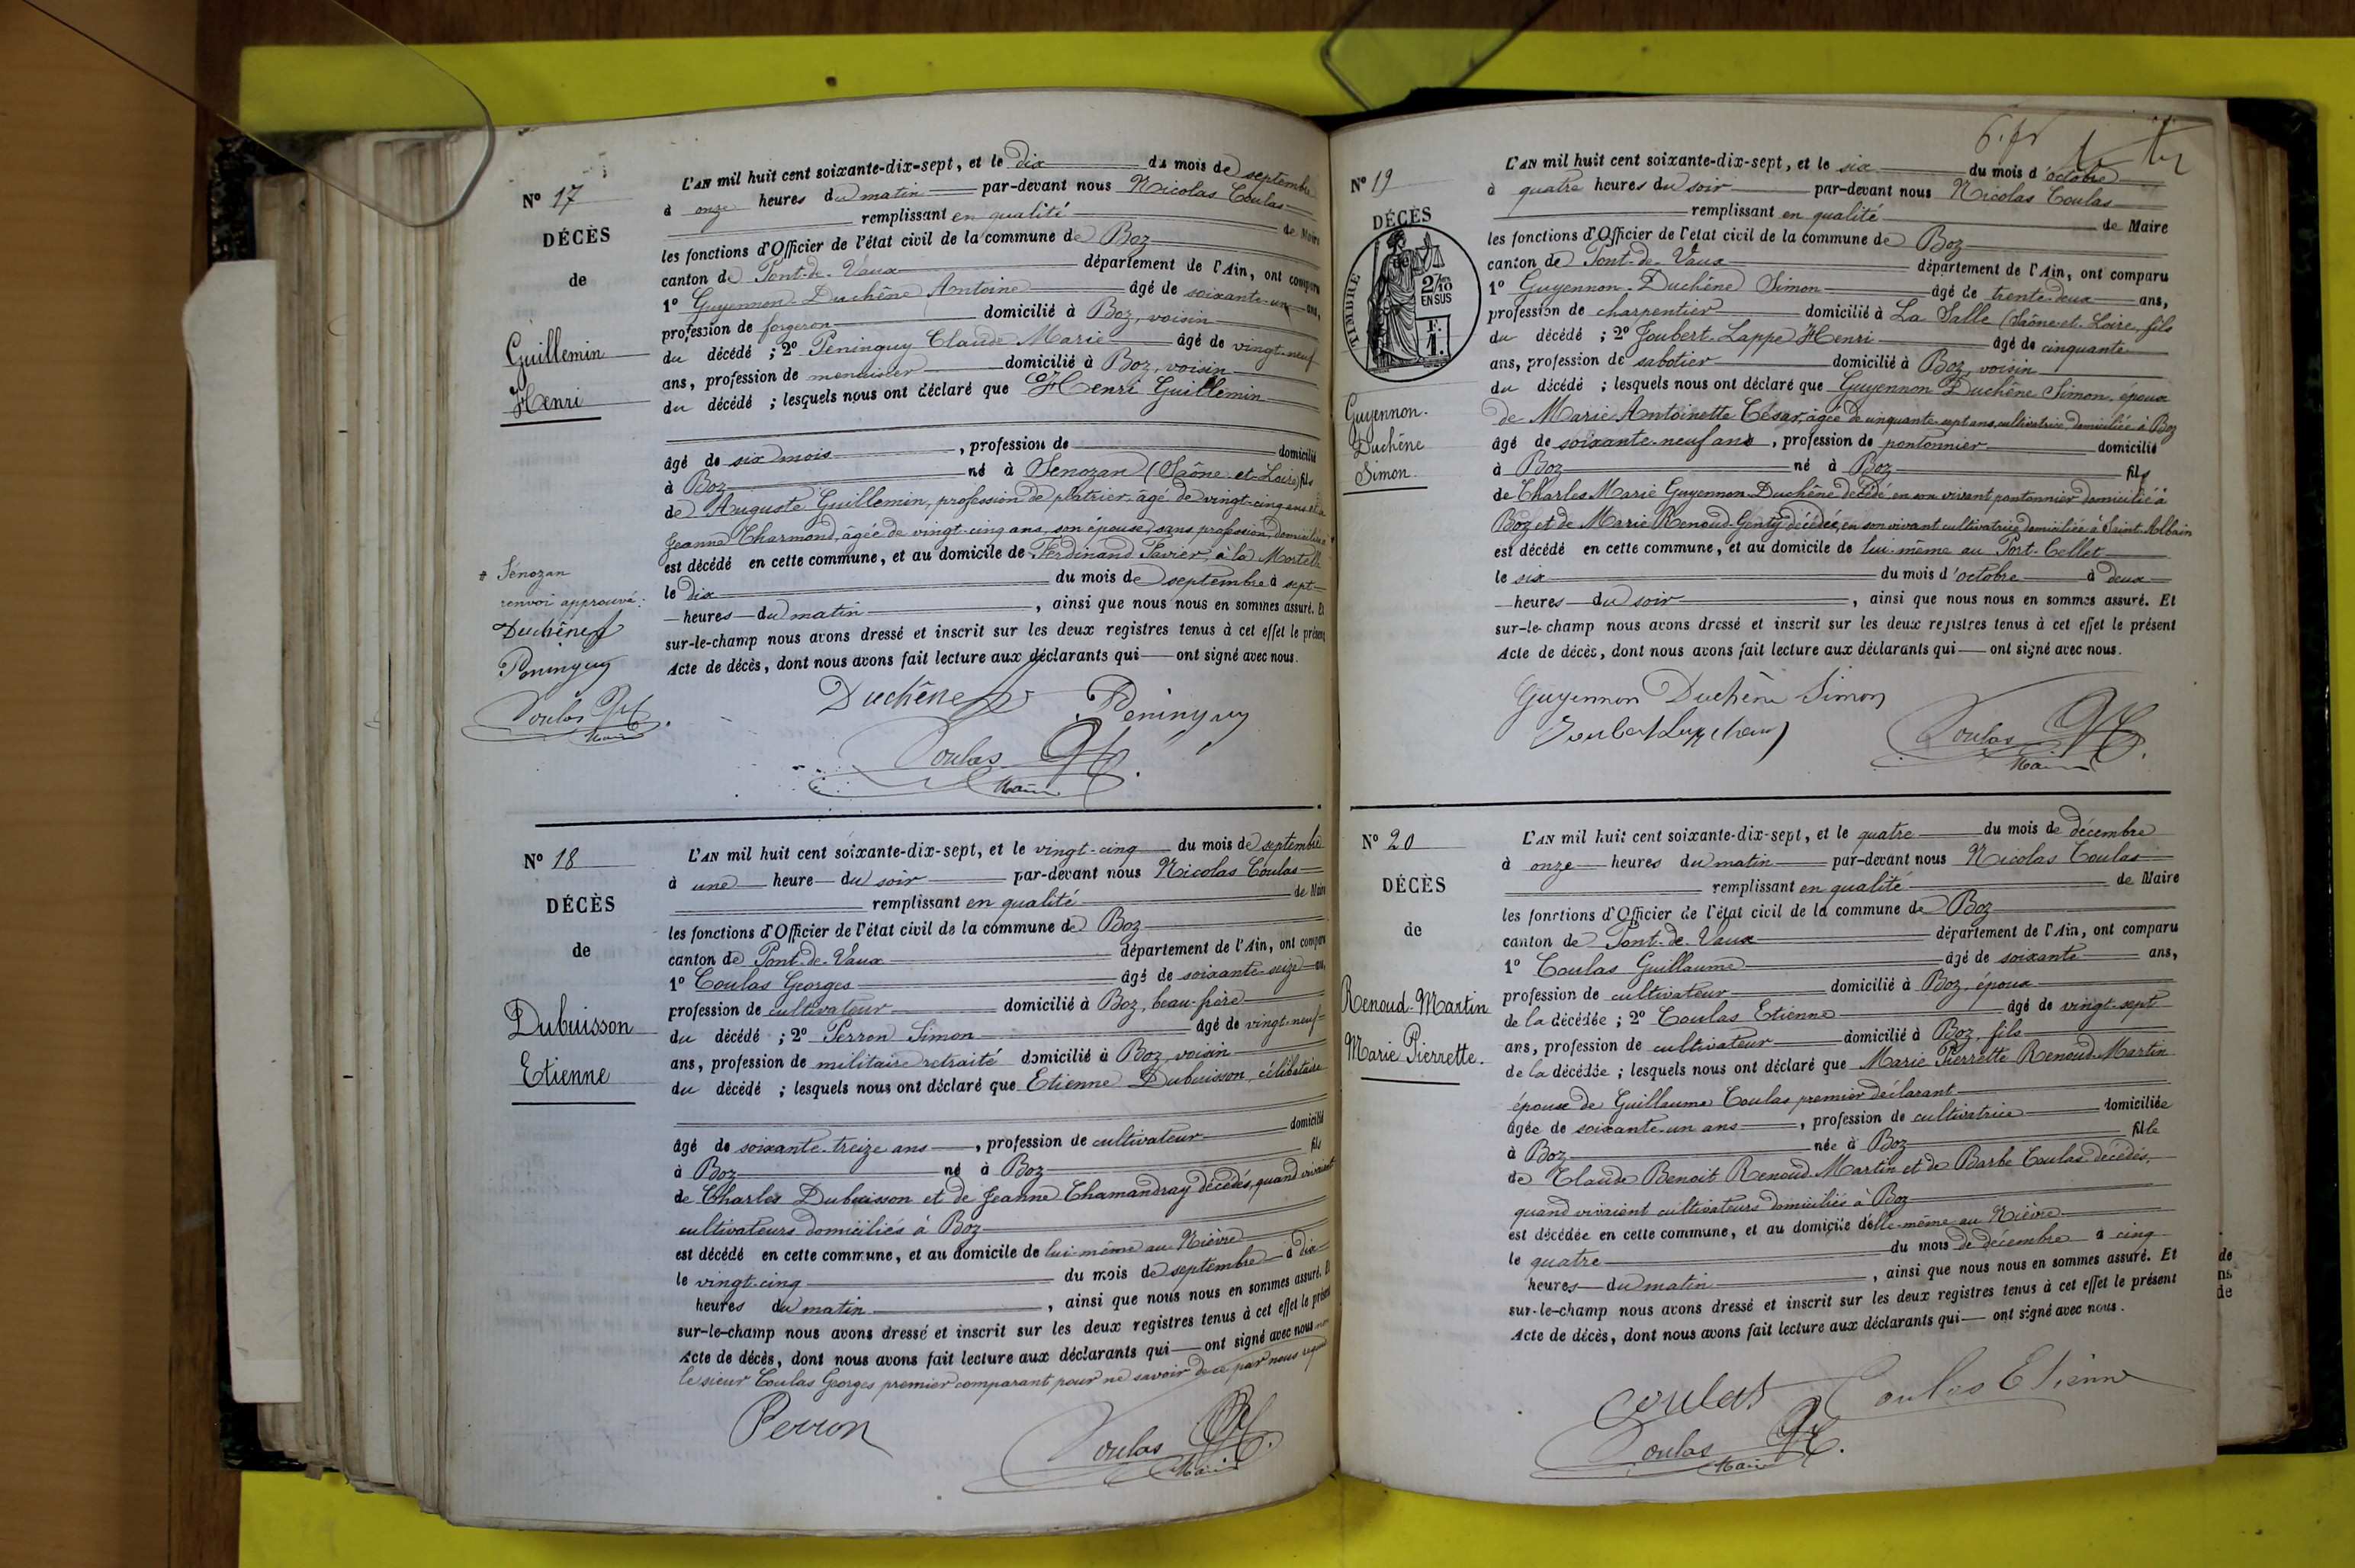 N° 17
DÉCÈS
de
Guillemin
Henri
L'AN mil huit cent soixante-dix-sept, et le dix du mois de septembre
à onze heures du matin par-devant nous Nicolas Coulas
remplissant en qualité de Maire
les fonctions d'Officier de l'état civil de la commune de Boz
canton de Pont-de-Vaux département de l'Ain, ont comparu
1° Guyennon-Duchêne Antoine âgé de soixante-un ans,
profession de forgeron domicilié à Boz, voisin
du décédé ; 2° Peninguy Claude Marie âgé de vingt-neuf
ans, profession de menuisier domicilié à Boz, voisin
du décédé ; lesquels nous ont déclaré que Henri Guillemin
âgé de six mois, profession de domicilié
à Boz né à Senozan (Saône-et-Loire) fils
de Auguste Guillemin, profession de platrier, âgé de vingt-cinq ans et de
Jeanne Charmond, âgée de vingt-cinq ans, son épouse, sans profession, domiciliés à
est décédé en cette commune, et au domicile de Ferdinand Pavier, à la
le dix du mois de septembre à sept
heures du matin, ainsi que nous nous en sommes assuré. Et
sur-le-champ nous avons dressé et inscrit sur les deux registres tenus à cet effet le présent
Acte de décès, dont nous avons fait lecture aux déclarants qui ont signé avec nous.
Sénozan
renvoi approuvé :
Duchêne
Peninguy
Coulas
Maire
Duchêne Peninguy
Coulas
Maire
N° 18
DÉCÈS
de
Dubuisson
Etienne
L'AN mil huit cent soixante-dix-sept, et le vingt-cinq du mois de septembre
à une heure du soir par-devant nous Nicolas Coulas
remplissant en qualité de Maire
les fonctions d'Officier de l'état civil de la commune de Boz
canton de Pont-de-Vaux département de l'Ain, ont comparu
1° Coulas Georges âgé de soixante-seize ans,
profession de cultivateur domicilié à Boz, beau-frère
du décédé ; 2° Perron Simon âgé de vingt-neuf
ans, profession de militaire retraité domicilié à Boz, voisin
du décédé ; lesquels nous ont déclaré que Etienne Dubuisson, célibataire
âgé de soixante-treize ans, profession de cultivateur domicilié
à Boz né à Boz fils
de Charles Dubuisson et de Jeanne Chamandray décédés, quand vivaient
cultivateurs domiciliés à Boz
est décédé en cette commune, et au domicile de lui-même au Nièvre
le vingt-cinq du mois de septembre à dix
heures du matin, ainsi que nous nous en sommes assuré. Et
sur-le-champ nous avons dressé et inscrit sur les deux registres tenus à cet effet le présent
Acte de décès, dont nous avons fait lecture aux déclarants qui ont signé avec nous non
le sieur Coulas Georges premier comparant pour ne savoir de ce par nous requis
Perron
Coulas
Maire
N° 19
DÉCÈS
de
TIMBRE
2/10
EN SUS
F.
1.
Guyennon-
Duchêne
Simon
L'AN mil huit cent soixante-dix-sept, et le six du mois d'octobre
à quatre heures du soir par-devant nous Nicolas Coulas
remplissant en qualité de Maire
les fonctions d'Officier de l'état civil de la commune de Boz
canton de Pont-de-Vaux département de l'Ain, ont comparu
1° Guyennon-Duchêne Simon âgé de trente-deux ans,
profession de charpentier domicilié à La Salle (Saône-et-Loire, fils
du décédé ; 2° Joubert-Lappe Henri âgé de cinquante
ans, profession de sabotier domicilié à Boz, voisin
du décédé ; lesquels nous ont déclaré que Guyennon Duchêne Simon, époux
de Marie Antoinette César, âgée de cinquante-sept ans, cultivatrice domiciliée à Boz
âgé de soixante-neuf ans, profession de pontonnier domicilié
à Boz né à Boz fils
de Charles Marie Guyennon-Duchêne décédé en son vivant pontonnier domicilié à
Boz et de Marie Renoud-Genty décédée, en son vivant cultivatrice domiciliée à Saint-Albain
est décédé en cette commune, et au domicile de lui-même au Port-Cellet
le six du mois d'octobre à deux
heures du soir, ainsi que nous nous en sommes assuré. Et
sur-le-champ nous avons dressé et inscrit sur les deux registres tenus à cet effet le présent
Acte de décès, dont nous avons fait lecture aux déclarants qui ont signé avec nous.
Guyennon Duchêne Simon
Coulas
Maire
N° 20
DÉCÈS
de
Renoud-Martin
Marie Pierrette.
L'AN mil huit cent soixante-dix-sept, et le quatre du mois de décembre
à onze heures du matin par-devant nous Nicolas Coulas
remplissant en qualité de Maire
les fonctions d'Officier de l'état civil de la commune de Boz
canton de Pont-de-Vaux département de l'Ain, ont comparu
1° Coulas Guillaume âgé de soixante ans,
profession de cultivateur domicilié à Boz, époux
de la décédée ; 2° Coulas Etienne âgé de vingt-sept
ans, profession de cultivateur domicilié à Boz, fils
de la décédée ; lesquels nous ont déclaré que Marie Pierrette Renoud-Martin
épouse de Guillaume Coulas premier déclarant
âgée de soixante-un ans, profession de cultivatrice domiciliée
à Boz née à Boz fille
de Claude Benoit Renoud Martin et de Barbe Coulas décédés,
quand vivaient cultivateurs domiciliés à Boz
est décédée en cette commune, et au domicile d'elle-même au Nièvre
le quatre du mois de décembre à cinq
heures du matin, ainsi que nous nous en sommes assuré. Et
sur-le-champ nous avons dressé et inscrit sur les deux registres tenus à cet effet le présent
Acte de décès, dont nous avons fait lecture aux déclarants qui ont signé avec nous.
Coulas Coulas Etienne
Coulas
Maire
de
ns
de